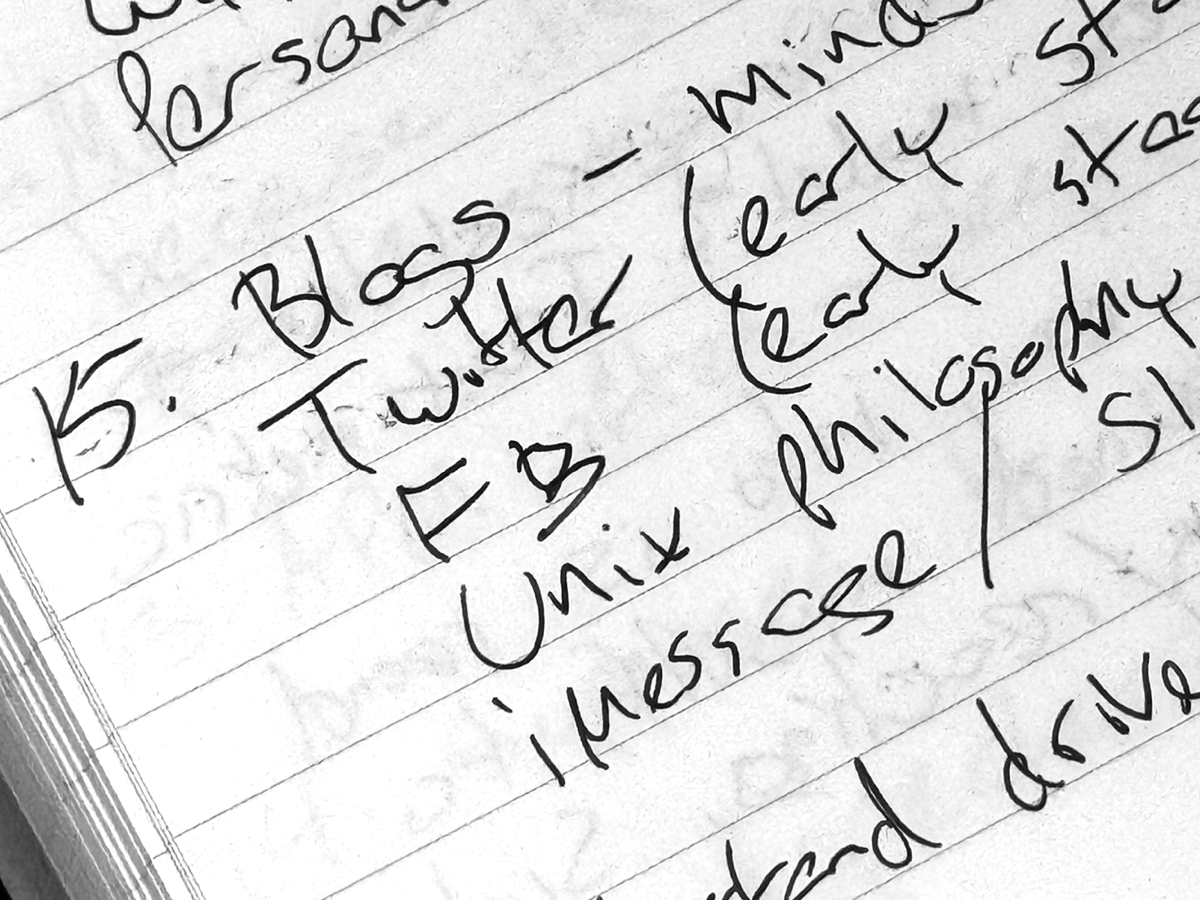 15. Blogs - mind
Twitter (early sta
FB (early stag
Unix philosophy
iMessage / Sl
drive